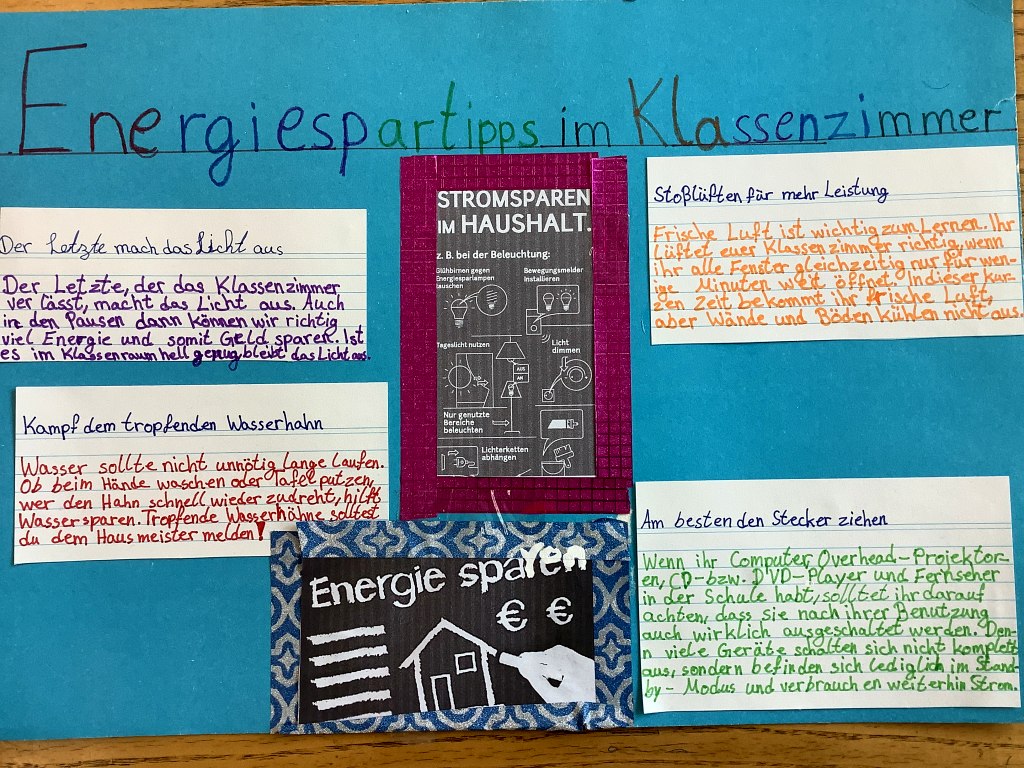 Energiespartipps im Klassenzimmer
Der Letzte mach das Licht aus
Der Letzte, der das Klassenzimmer
verlässt, macht das Licht aus. Auch
in den Pausen dann können wir richtig
viel Energie und somit Geld sparen. Ist
es im Klassenraum hell genug bleibt das Licht aus.
Kampf dem tropfenden Wasserhahn
Wasser sollte nicht unnötig lange laufen.
Ob beim Hände waschen oder Tafel putzen,
wer den Hahn schnell wieder zudreht, hilft
Wasser sparen. Tropfende Wasserhähne solltest
du dem Hausmeister melden!
STROMSPAREN
IM HAUSHALT.
z. B. bei der Beleuchtung:
Glühbirnen gegen
Energiesparlampen
tauschen
Bewegungsmelder
Installieren
Tageslicht nutzen
AUS
AN
Licht
dimmen
Nur genutzte
Bereiche
beleuchten
Lichterketten
abhängen
Energie sparen
€ €
Stoßlüften für mehr Leistung
Frische Luft ist wichtig zum Lernen. Ihr
lüftet euer Klassenzimmer richtig, wenn
ihr alle Fenster gleichzeitig nur für we-
nige Minuten weit öffnet. In dieser kur-
zen Zeit bekommt ihr frische Luft,
aber Wände und Böden kühlen nicht aus.
Am besten den Stecker ziehen
Wenn ihr Computer, Overhead-Projektor-
en, CD- bzw. DVD-Player und Fernseher
in der Schule habt, solltet ihr darauf
achten, dass sie nach ihrer Benutzung
auch wirklich ausgeschaltet werden. Den-
n viele Geräte schalten sich nicht komplett
aus, sondern befinden sich lediglich im Stand-
by-Modus und verbrauchen weiterhin Strom.